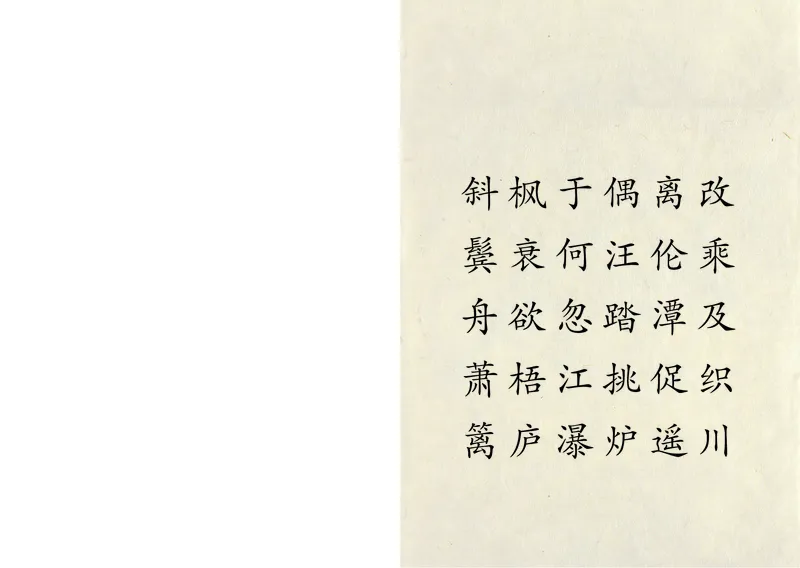 斜枫于偶离改
鬓衰何汪伦乘
舟欲忽踏潭及
萧梧江挑促织
篱庐瀑炉遥川